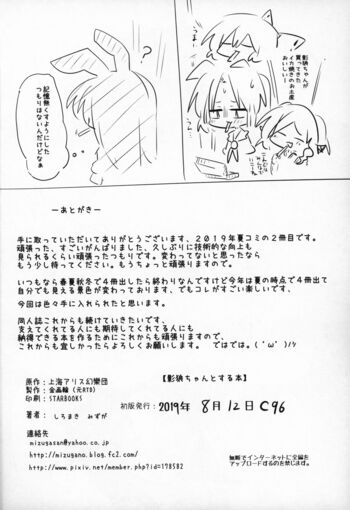 影狼ちゃんが
買ってきた
イカ焼きのお土産
おいしい!
こんなに
記憶無くすようにした
つもりはないんだけどなぁ
?
ーあとがきー
手に取っていただいてありがとうございます、2019年夏コミの2冊目です。
頑張った、すごいがんばりました、久しぶりに技術的な向上も
見られるくらい頑張ったつもりです。変わってないと思ったなら
もう少し待ってください。もうちょっと頑張りますので。
いつもなら春夏秋冬で4冊出したら終わりなんですけど今年は夏の時点で4冊出て
自分でも見える景色が変わっております、でもコレがすごい楽しいです、
今回は色々手に入れられたと思います。
同人誌これからも続けていきたいです、
支えてくれてる人にも期待してくれてる人にも
納得できる本を作るためにこれからも頑張りますので、
これからも宜しかったらよろしくお願いします。 ではでは。(´ω`)ノシ
【影狼ちゃんとする本】
原作:上海アリス幻樂団
製作:金画輪(元RTD)
印刷:STARBOOKS
著者:しろまき みずが
初版発行:2019年 8月12日 C96
連絡先
mizugasan@yahoo.co.jp
http://mizugano.blog.fc2.com/
http://www.pixiv.net/member.php?id=178582
無断でインターネットに全編を
アップロードするのを禁じます。